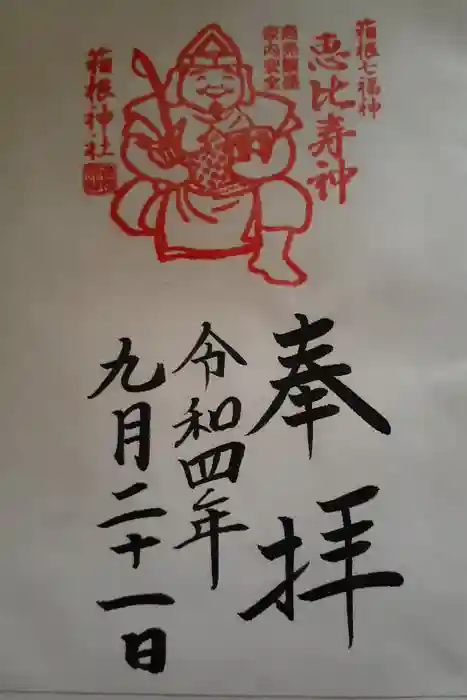 箱根七福神
恵比寿神
商売繁盛
家内安全
箱根神社
奉拝
令和四年
九月二十一日